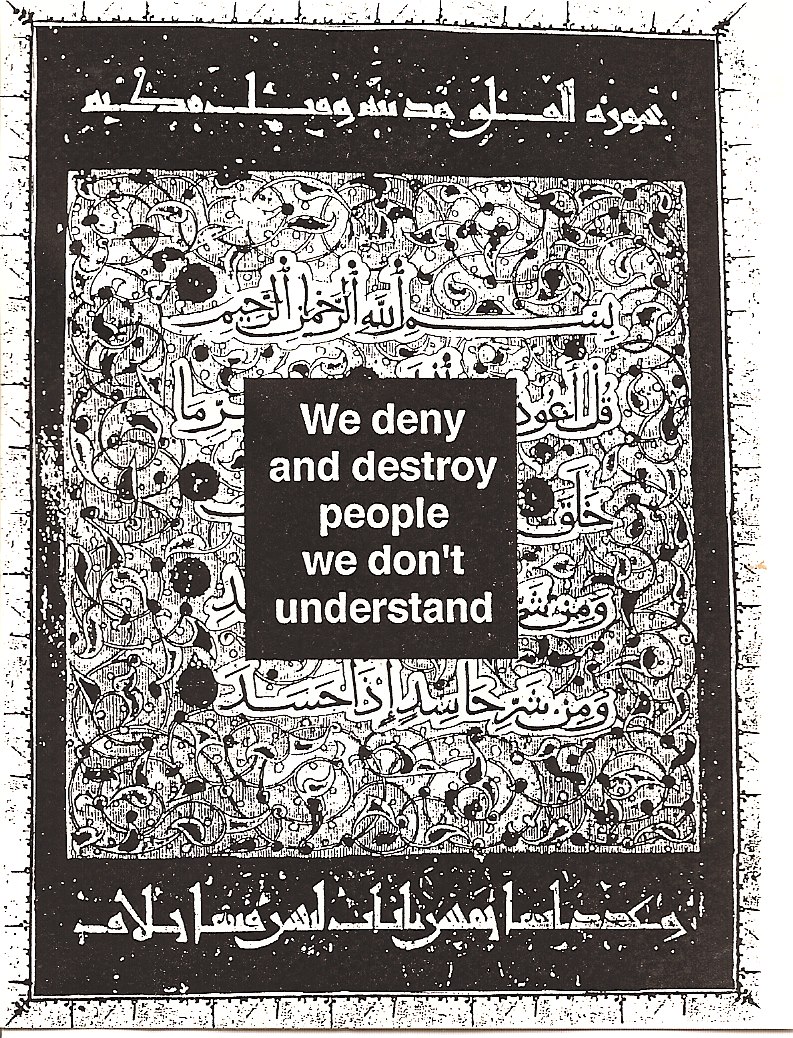 سورة الفلق مدنية وقيل مكية
بِسْمِ اللَّهِ الرَّحْمٰنِ الرَّحِيمِ
قُلْ أَعُوذُ مَا
خَلَقَ
وَمِن شَرِّ
وَمِن شَرِّ حَاسِدٍ إِذَا حَسَدَ
We deny
and destroy
people
we don't
understand
ليس فيها خلاف